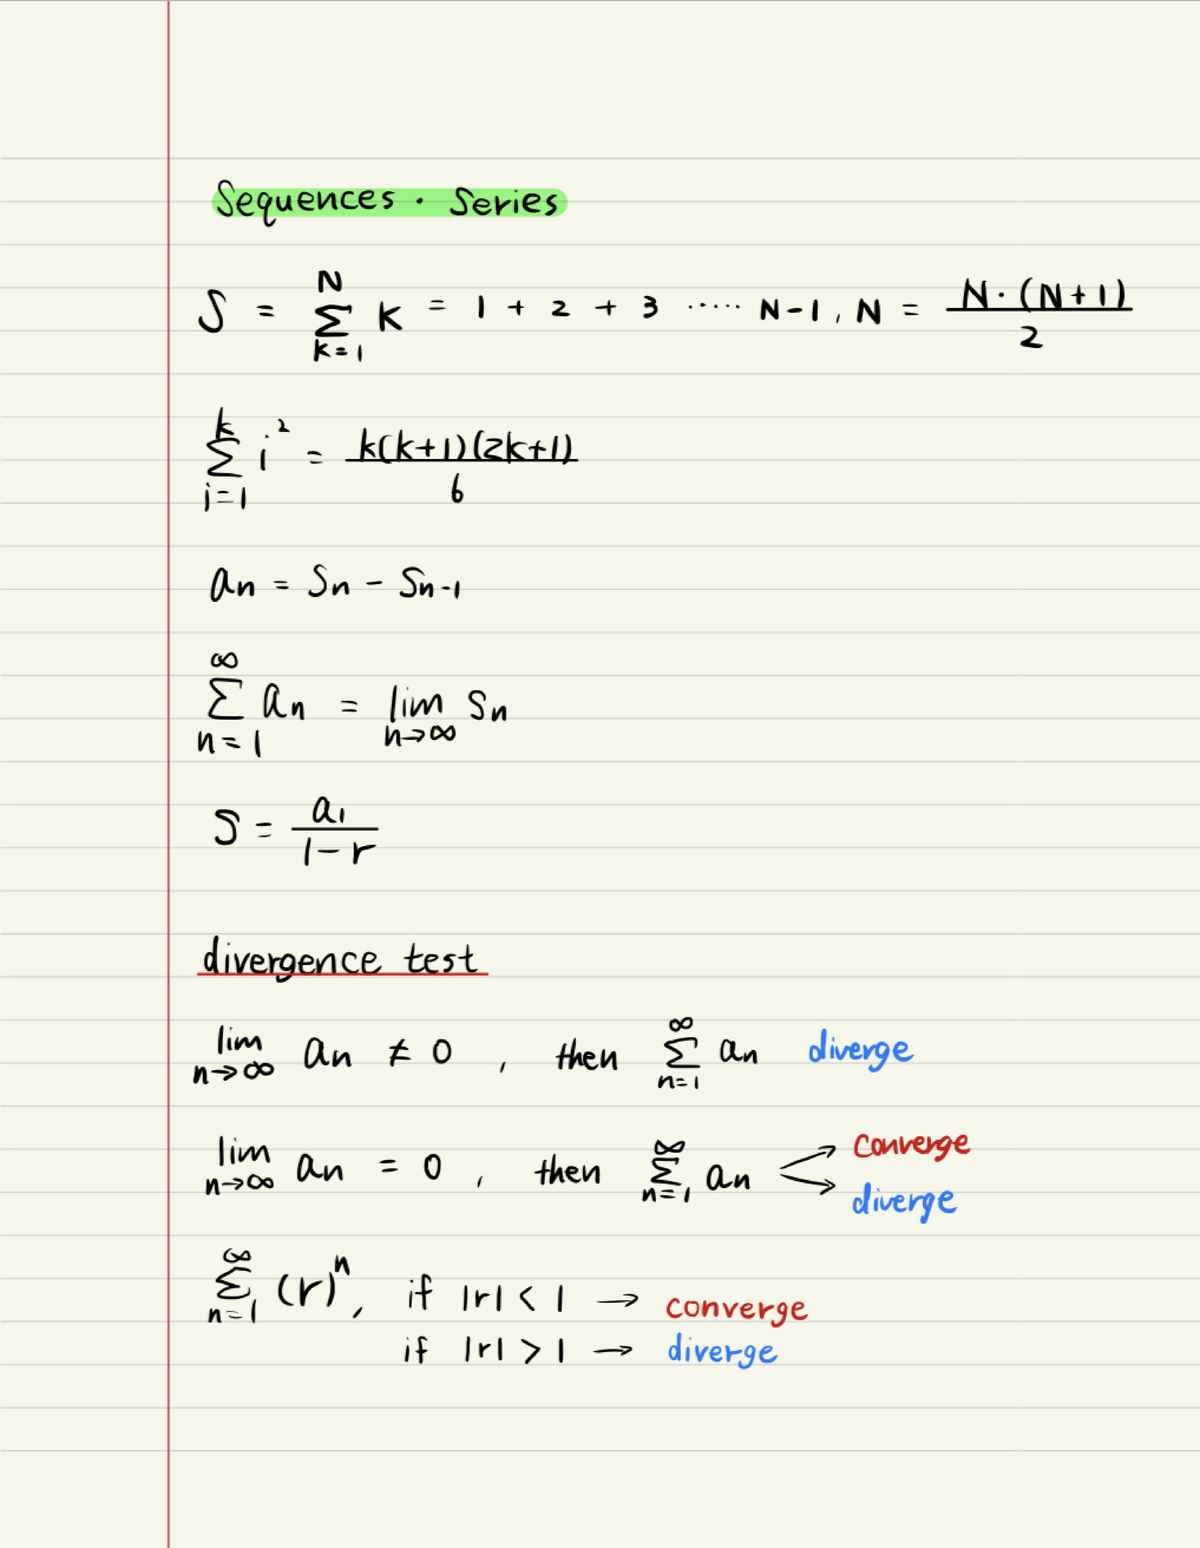 Sequences · Series
S = \sum_{k=1}^{N} k = 1 + 2 + 3 ····· N-1, N = \frac{N·(N+1)}{2}
\sum_{i=1}^{k} i^2 = \frac{k(k+1)(2k+1)}{6}
a_n = S_n - S_{n-1}
\sum_{n=1}^{∞} a_n = \lim_{n→∞} S_n
S = \frac{a_1}{1-r}
divergence test
\lim_{n→∞} a_n ≠ 0 , then \sum_{n=1}^{∞} a_n diverge
\lim_{n→∞} a_n = 0 , then \sum_{n=1}^{∞} a_n → converge
→ diverge
\sum_{n=1}^{∞} (r)^n, if |r| < 1 → converge
if |r| > 1 → diverge